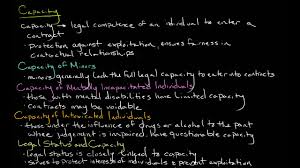 Capacity
capacity → legal competence of an individual to enter a
contract
· protection against exploitation, ensures fairness in
contractual relationships
Capacity of Minors
· minors generally lack the full legal capacity to enter into contracts
Capacity of Mentally Incapacitated Individuals
· those with mental disabilities have limited capacity
· contracts may be voidable
Capacity of Intoxicated Individuals
· those under the influence of drugs or alcohol to the point
where judgement is impaired, have questionable capacity
Legal Status and Capacity
· legal status is closely linked to capacity
· serves to protect interests of individuals & prevent exploitation